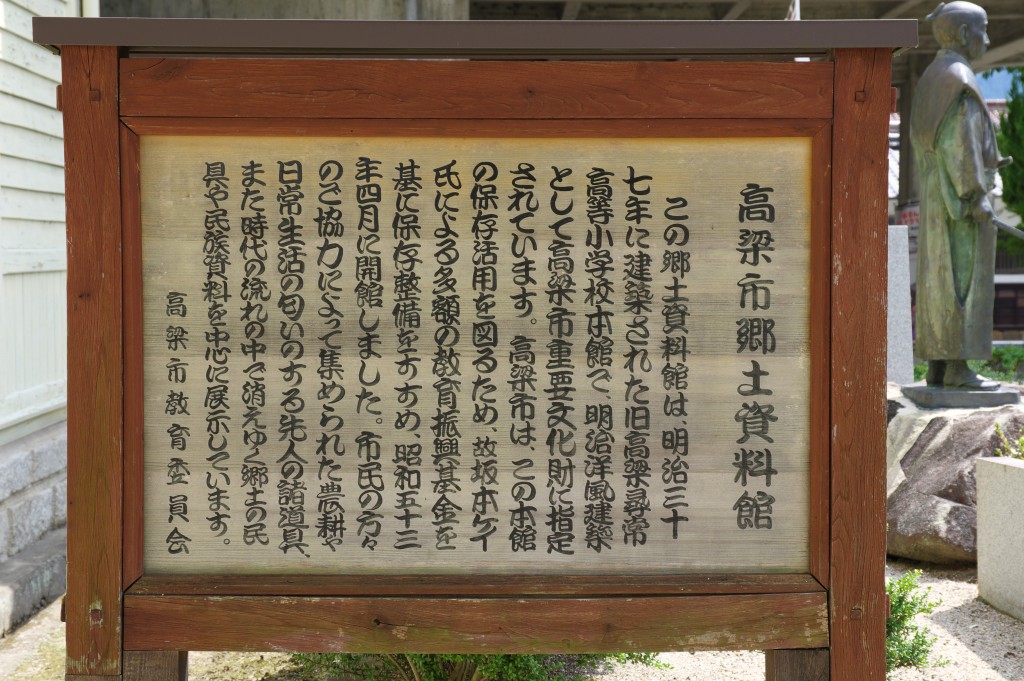 高梁市郷土資料館
この郷土資料館は、明治三十
七年に建築された旧高梁尋常
高等小学校本館で、明治洋風建築
として高梁市重要文化財に指定
されています。高梁市は、この本館
の保存活用を図るため、故坂本ケイ
氏による多額の教育振興基金を
基に保存整備をすすめ、昭和五十三
年四月に開館しました。市民の方々
のご協力によって集められた農耕や
日常生活の匂いのする先人の諸道具、
また時代の流れの中で消えゆく郷土の民
具や民族資料を中心に展示しています。
高梁市教育委員会